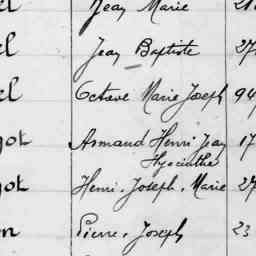 el Jean Marie
el Jean Baptiste 27
el Octave Marie Joseph 94
got Armand Henri Jean 17
Hyacinthe
got Henri, Joseph, Marie 27
Pierre, Joseph 23